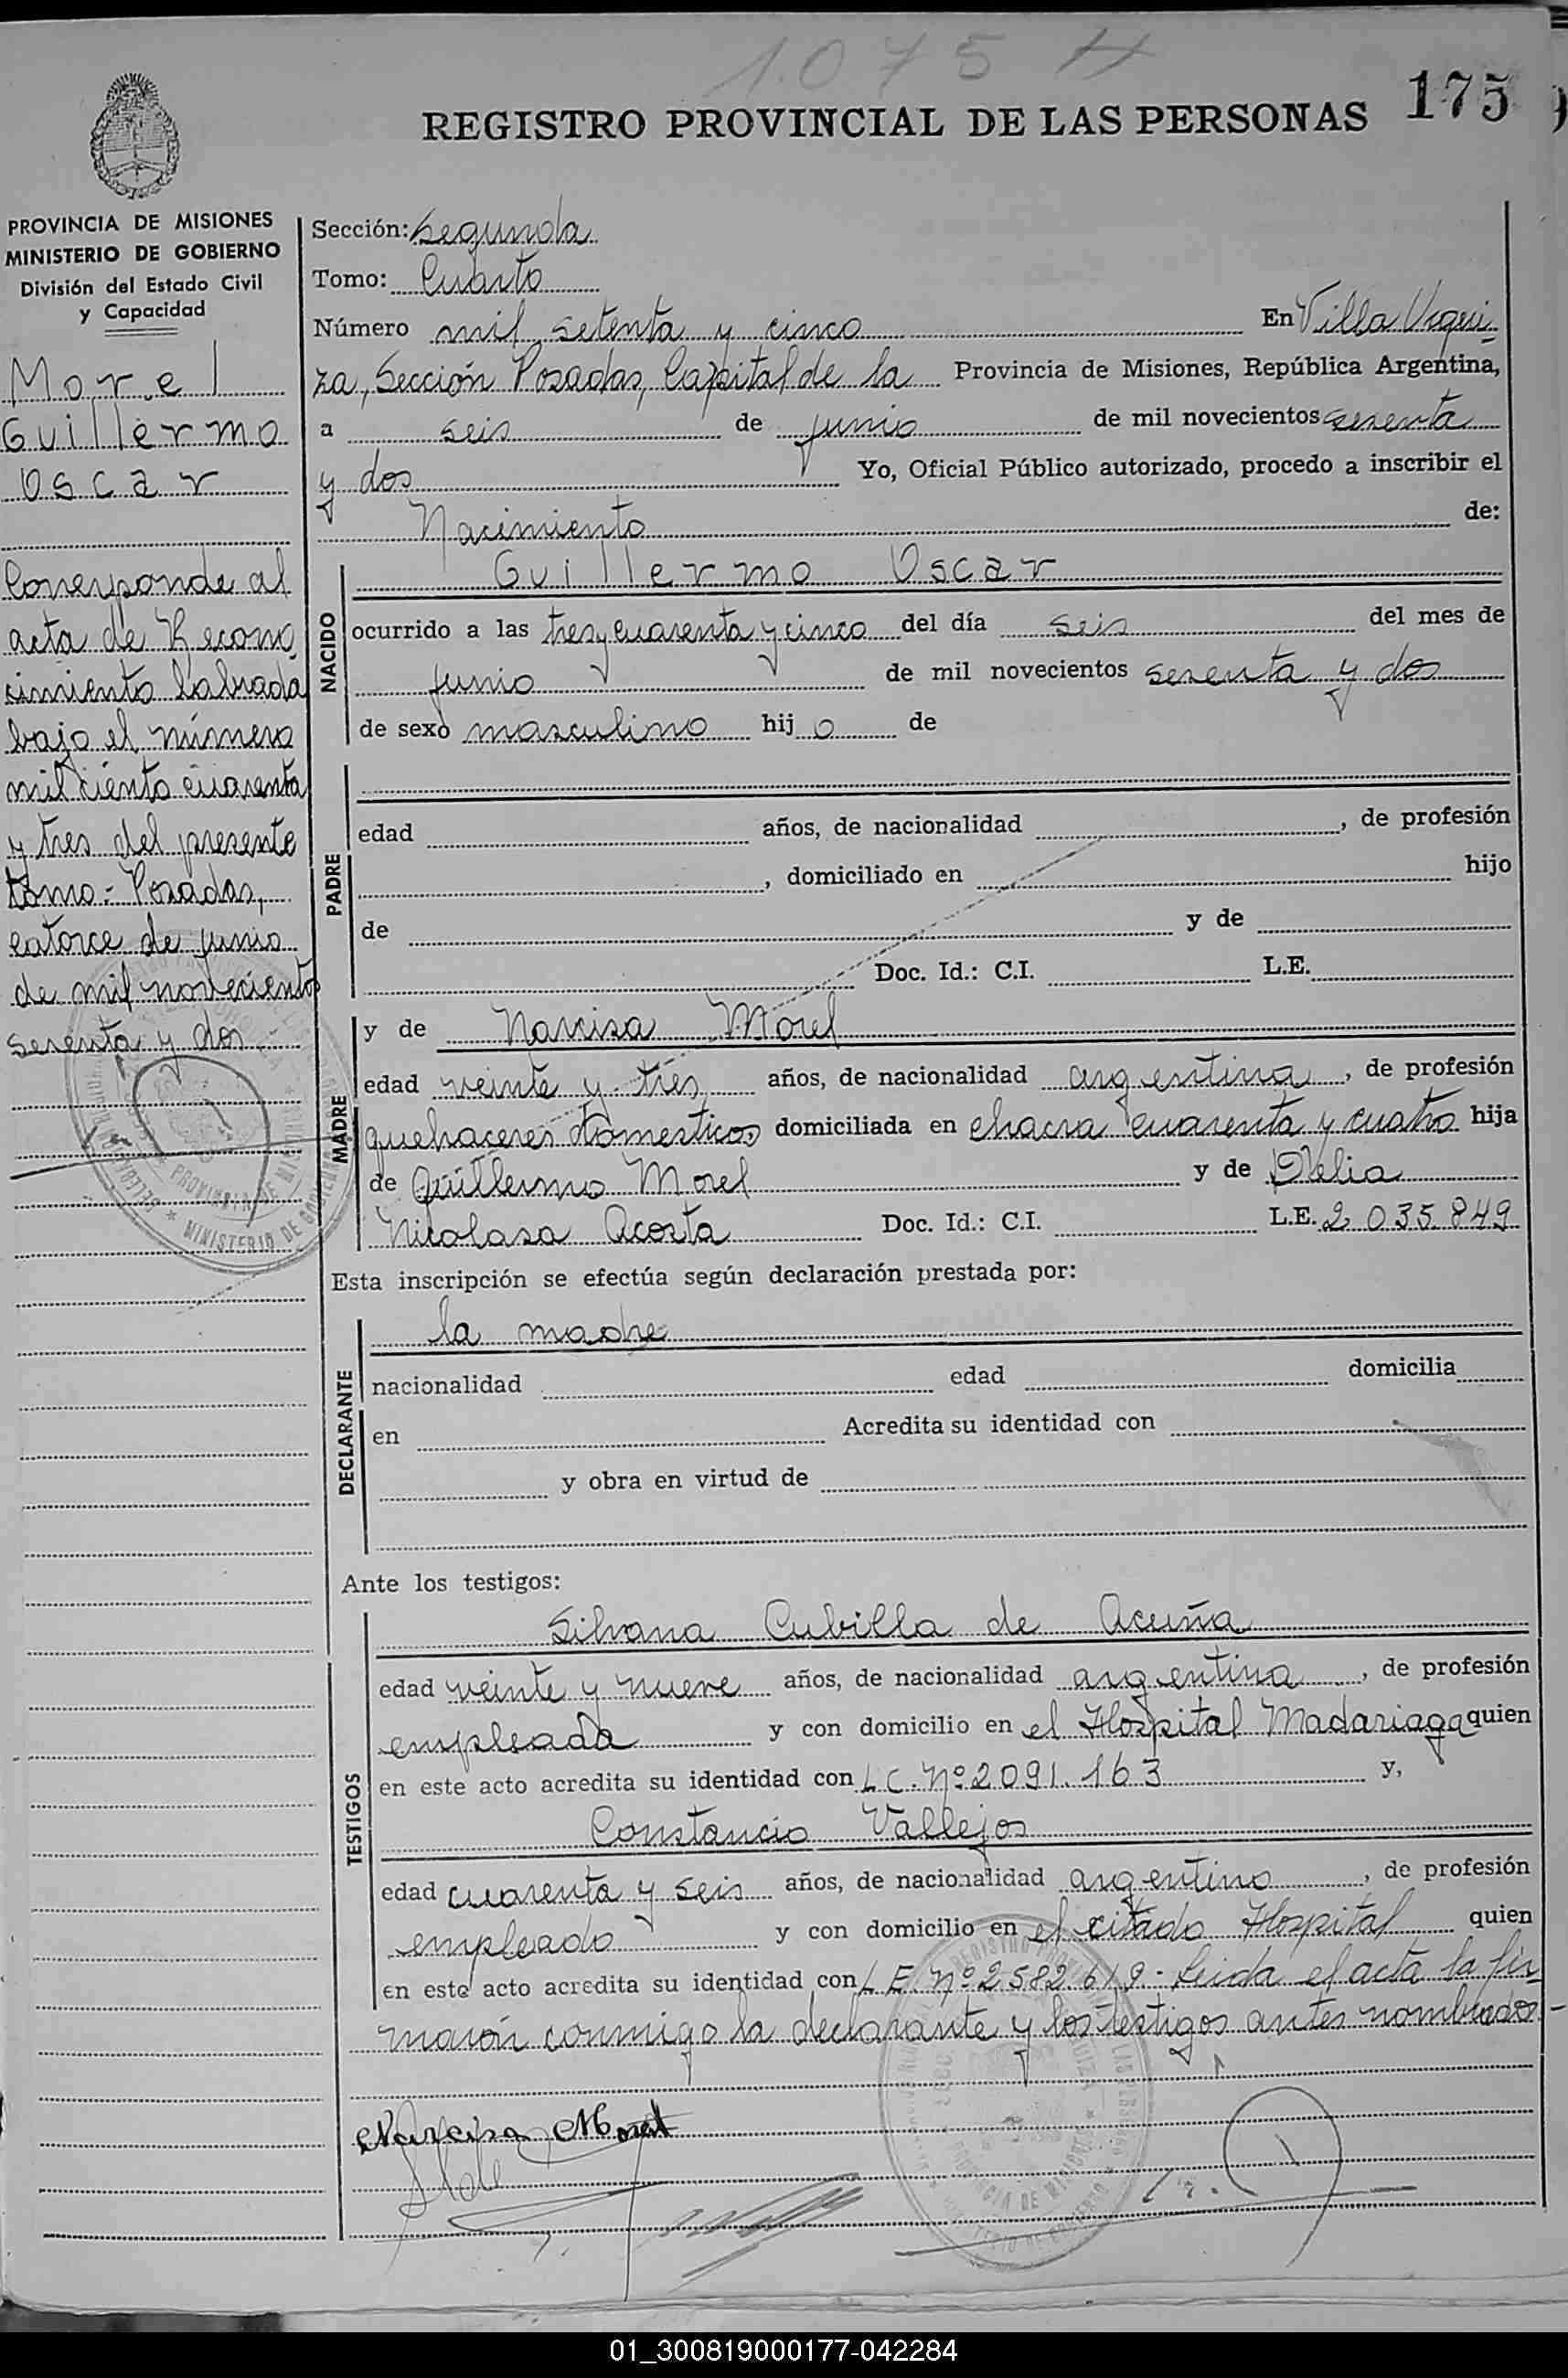 1075
REGISTRO PROVINCIAL DE LAS PERSONAS 175
PROVINCIA DE MISIONES
MINISTERIO DE GOBIERNO
División del Estado Civil
y Capacidad
Morel
Guillermo
Oscar
Corresponde al
acta de Recono
cimiento labrada
bajo el número
mil ciento cuarenta
y tres del presente
tomo.- Posadas,
catorce de junio
de mil novecientos
sesenta y dos
Sección: Segunda
Tomo: Cuarto
Número mil setenta y cinco En Villa Urqui-
za, Sección Posadas, Capital de la Provincia de Misiones, República Argentina,
a seis de junio de mil novecientos sesenta
y dos Yo, Oficial Público autorizado, procedo a inscribir el
Nacimiento de:
NACIDO
Guillermo Oscar
ocurrido a las tres y cuarenta y cinco del día seis del mes de
junio de mil novecientos sesenta y dos
de sexo masculino hijo de
PADRE
edad años, de nacionalidad , de profesión
, domiciliado en hijo
de y de
Doc. Id.: C.I. L.E.
MADRE
y de Narcisa Morel
edad veinte y tres años, de nacionalidad argentina, de profesión
quehaceres domesticos domiciliada en chacra cuarenta y cuatro hija
de Guillermo Morel y de Delia
Nicolasa Acosta Doc. Id.: C.I. L.E. 2.035.849
Esta inscripción se efectúa según declaración prestada por:
DECLARANTE
la madre
nacionalidad edad domicilia
en Acredita su identidad con
y obra en virtud de
Ante los testigos:
TESTIGOS
Silvana Cubilla de Acuña
edad veinte y nueve años, de nacionalidad argentina, de profesión
empleada y con domicilio en el Hospital Madariaga quien
en este acto acredita su identidad con L C. Nº 2091.163 y,
Constancio Vallejos
edad cuarenta y seis años, de nacionalidad argentino, de profesión
empleado y con domicilio en el citado Hospital quien
en este acto acredita su identidad con L E. Nº 2582619.- Leida el acta la fir
maron conmigo la declarante y los testigos antes nombrados-
Narcisa Morel
01_300819000177-042284